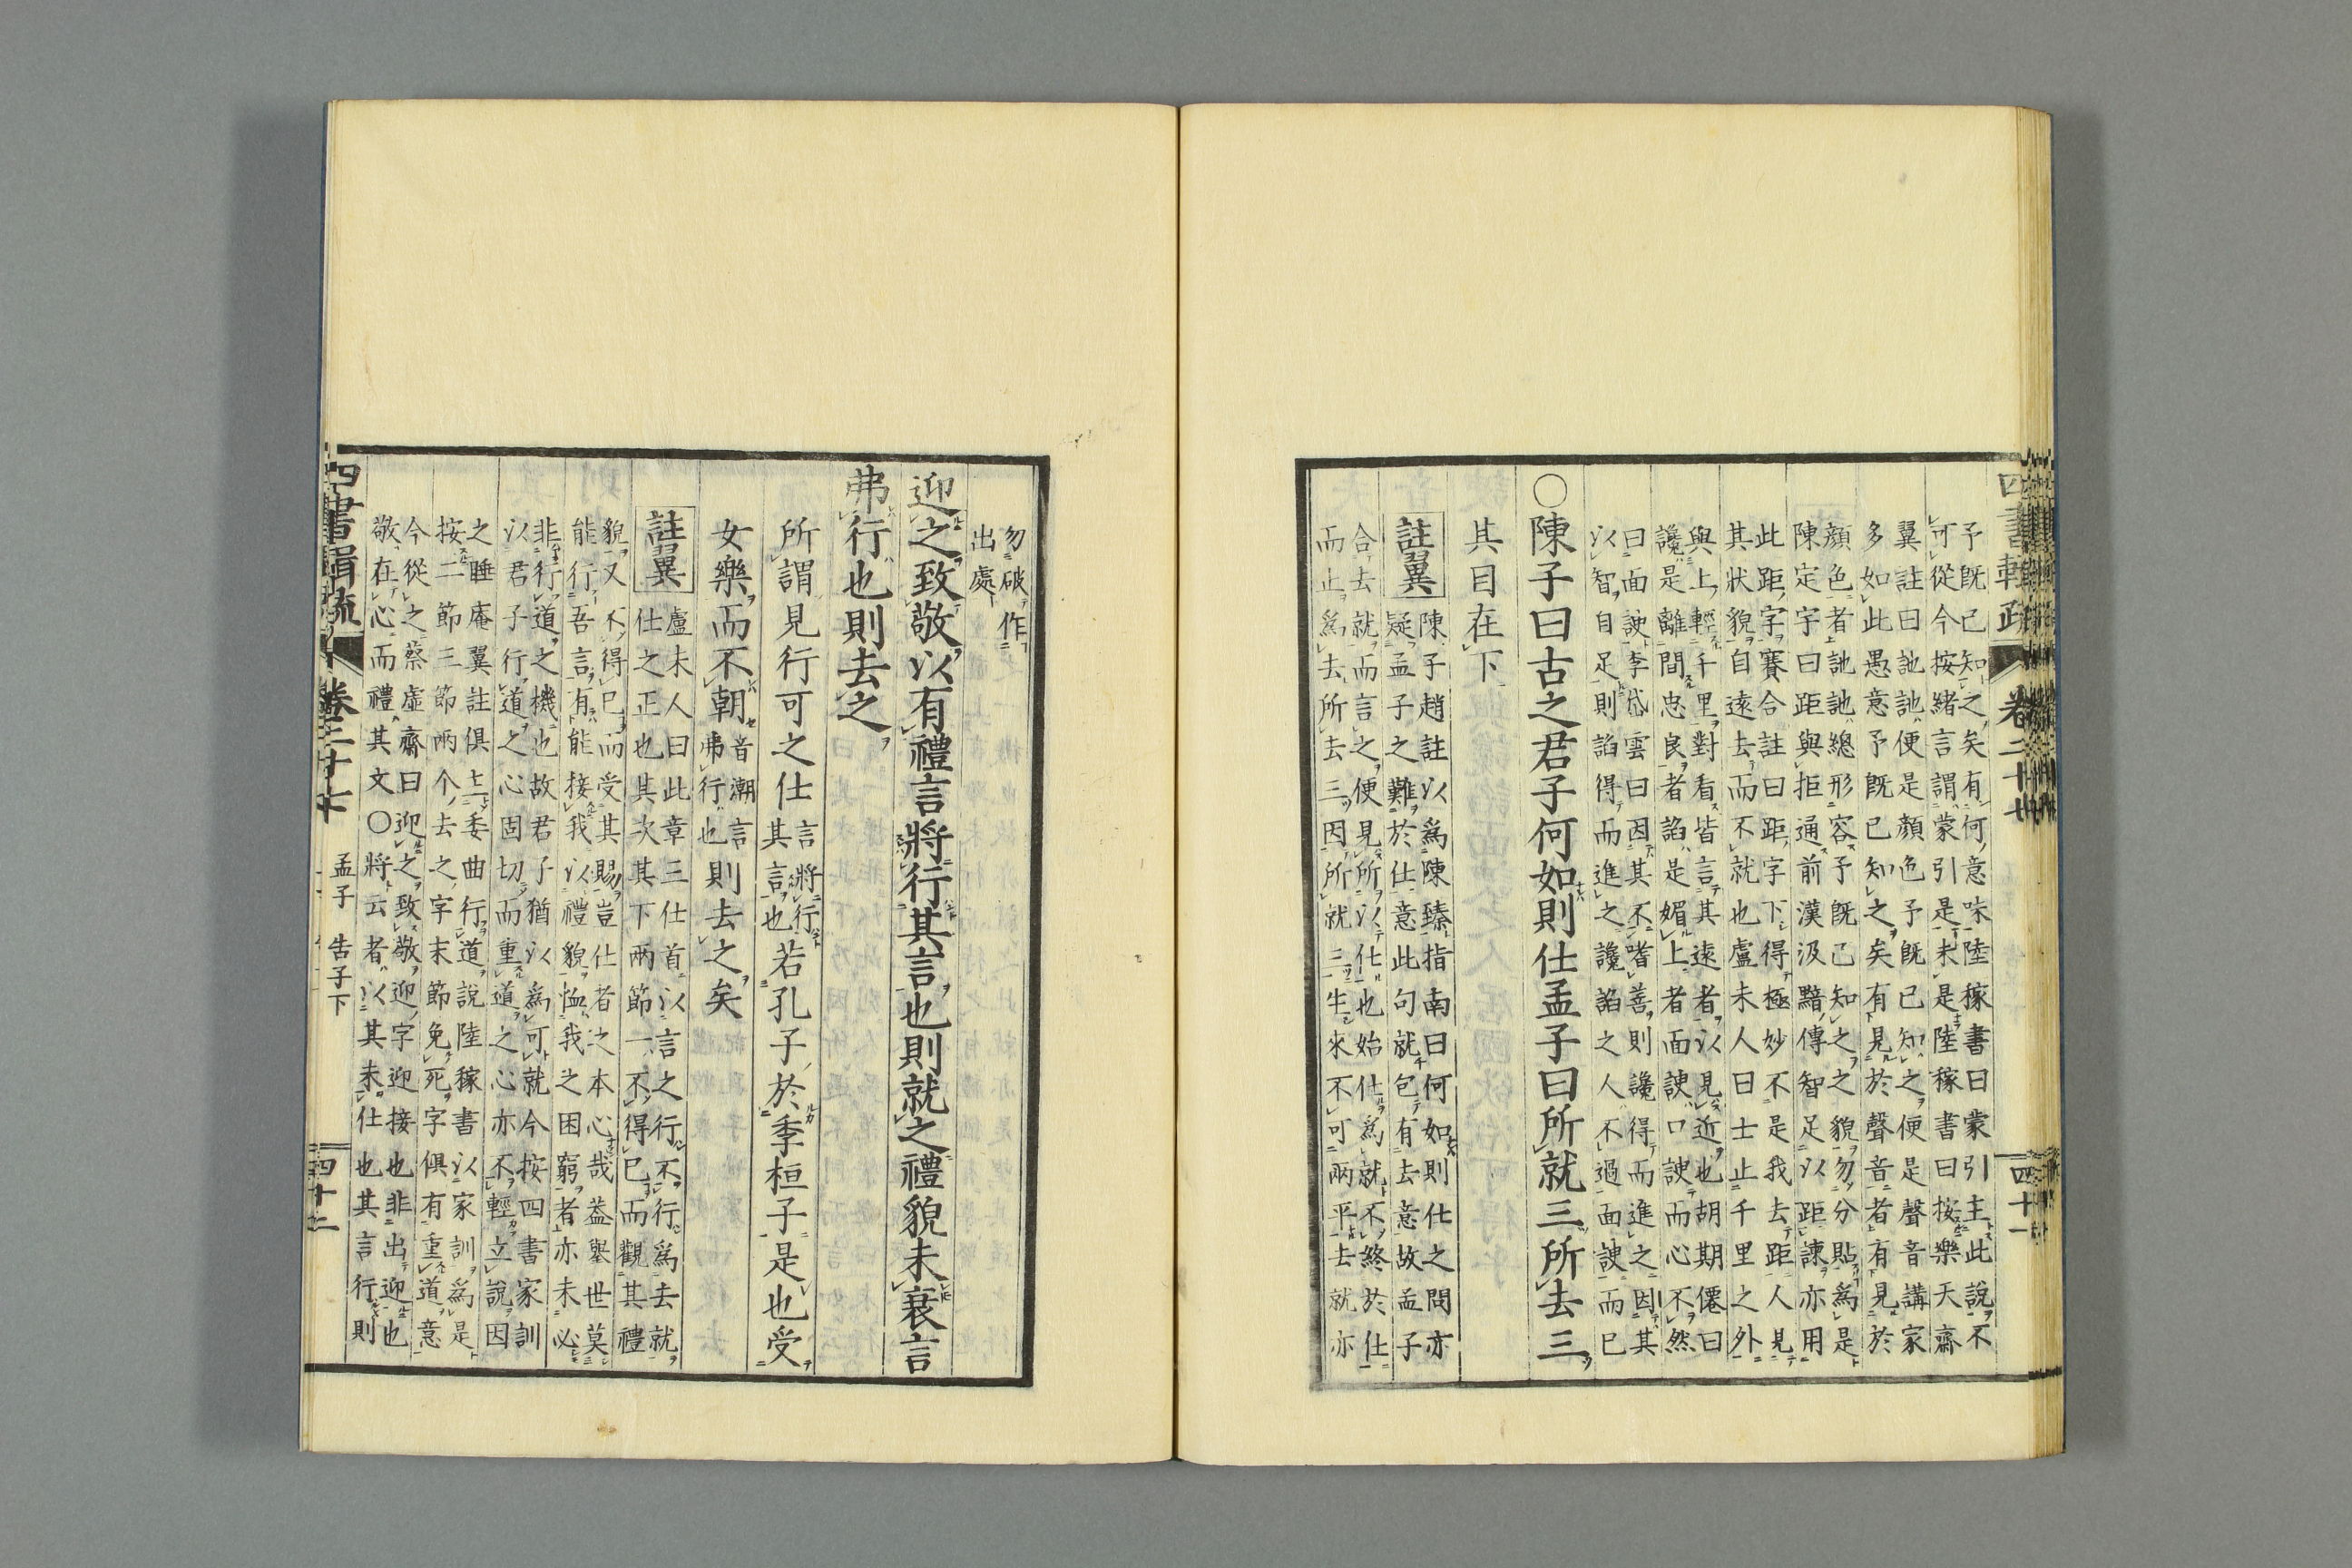 四書輯疏
卷二十七
四十一
予既已知之矣有何意味陸稼書曰蒙引主此說不
可從今按緒言謂蒙引是未是陸稼書曰按樂天齋
翼註曰訑訑便是顏色予既已知之便是聲音講家
多如此愚意予既已知之矣有見於聲音者有見於
顏色者訑訑總形容予既已知之之貌勿分貼爲是
陳定宇曰距與拒通前漢汲黯傳智足以距諫亦用
此距字賽合註曰距字下得極妙不是我去距人見
其狀貌自遠去而不就也盧未人曰士止千里之外
與上輕千里對看皆言其遠者以見近也胡期僊曰
讒是離間忠良者諂是媚上者面諛口諛而心不然
曰面諛李岱雲曰因其不嗜善則讒得而進之因其
以智自足則諂得而進之讒諂之人不過面諛而已
○陳子曰古之君子何如則仕孟子曰所就三所去三
其目在下
註翼
陳子趙註以爲陳臻指南曰何如則仕之問亦
疑孟子之難於仕意此句就包有去意故孟子
合去就而言之便見所以仕也始仕爲就不終於仕
而止爲去所去三因所就三生來不可兩平去就亦
勿破作
出處
迎之致敬以有禮言將行其言也則就之禮貌未衰言
弗行也則去之
所謂見行可之仕言將行其言也若孔子於季桓子是也受
女樂而不朝音潮言弗行也則去之矣
註翼
盧未人曰此章三仕首以言之行不行爲去就
仕之正也其次其下兩節一不得已而觀其禮
貌又不得已而受其賜豈仕者之本心哉蓋舉世莫
能行吾言有能接我以禮貌恤我之困窮者亦未必
非行道之機也故君子猶以爲可就今按四書家訓
以君子行道之心固切而重道之心亦不輕立說因
之睡庵翼註俱主委曲行道說陸稼書以家訓爲是
按二節三節兩个去之字末節免死字俱有重道意
今從之蔡虛齋曰迎之致敬迎字迎接也非出迎也
敬在心而禮其文○將云者以其未仕也其言行則
四書輯疏
卷二十七
孟子 告子下
四十二